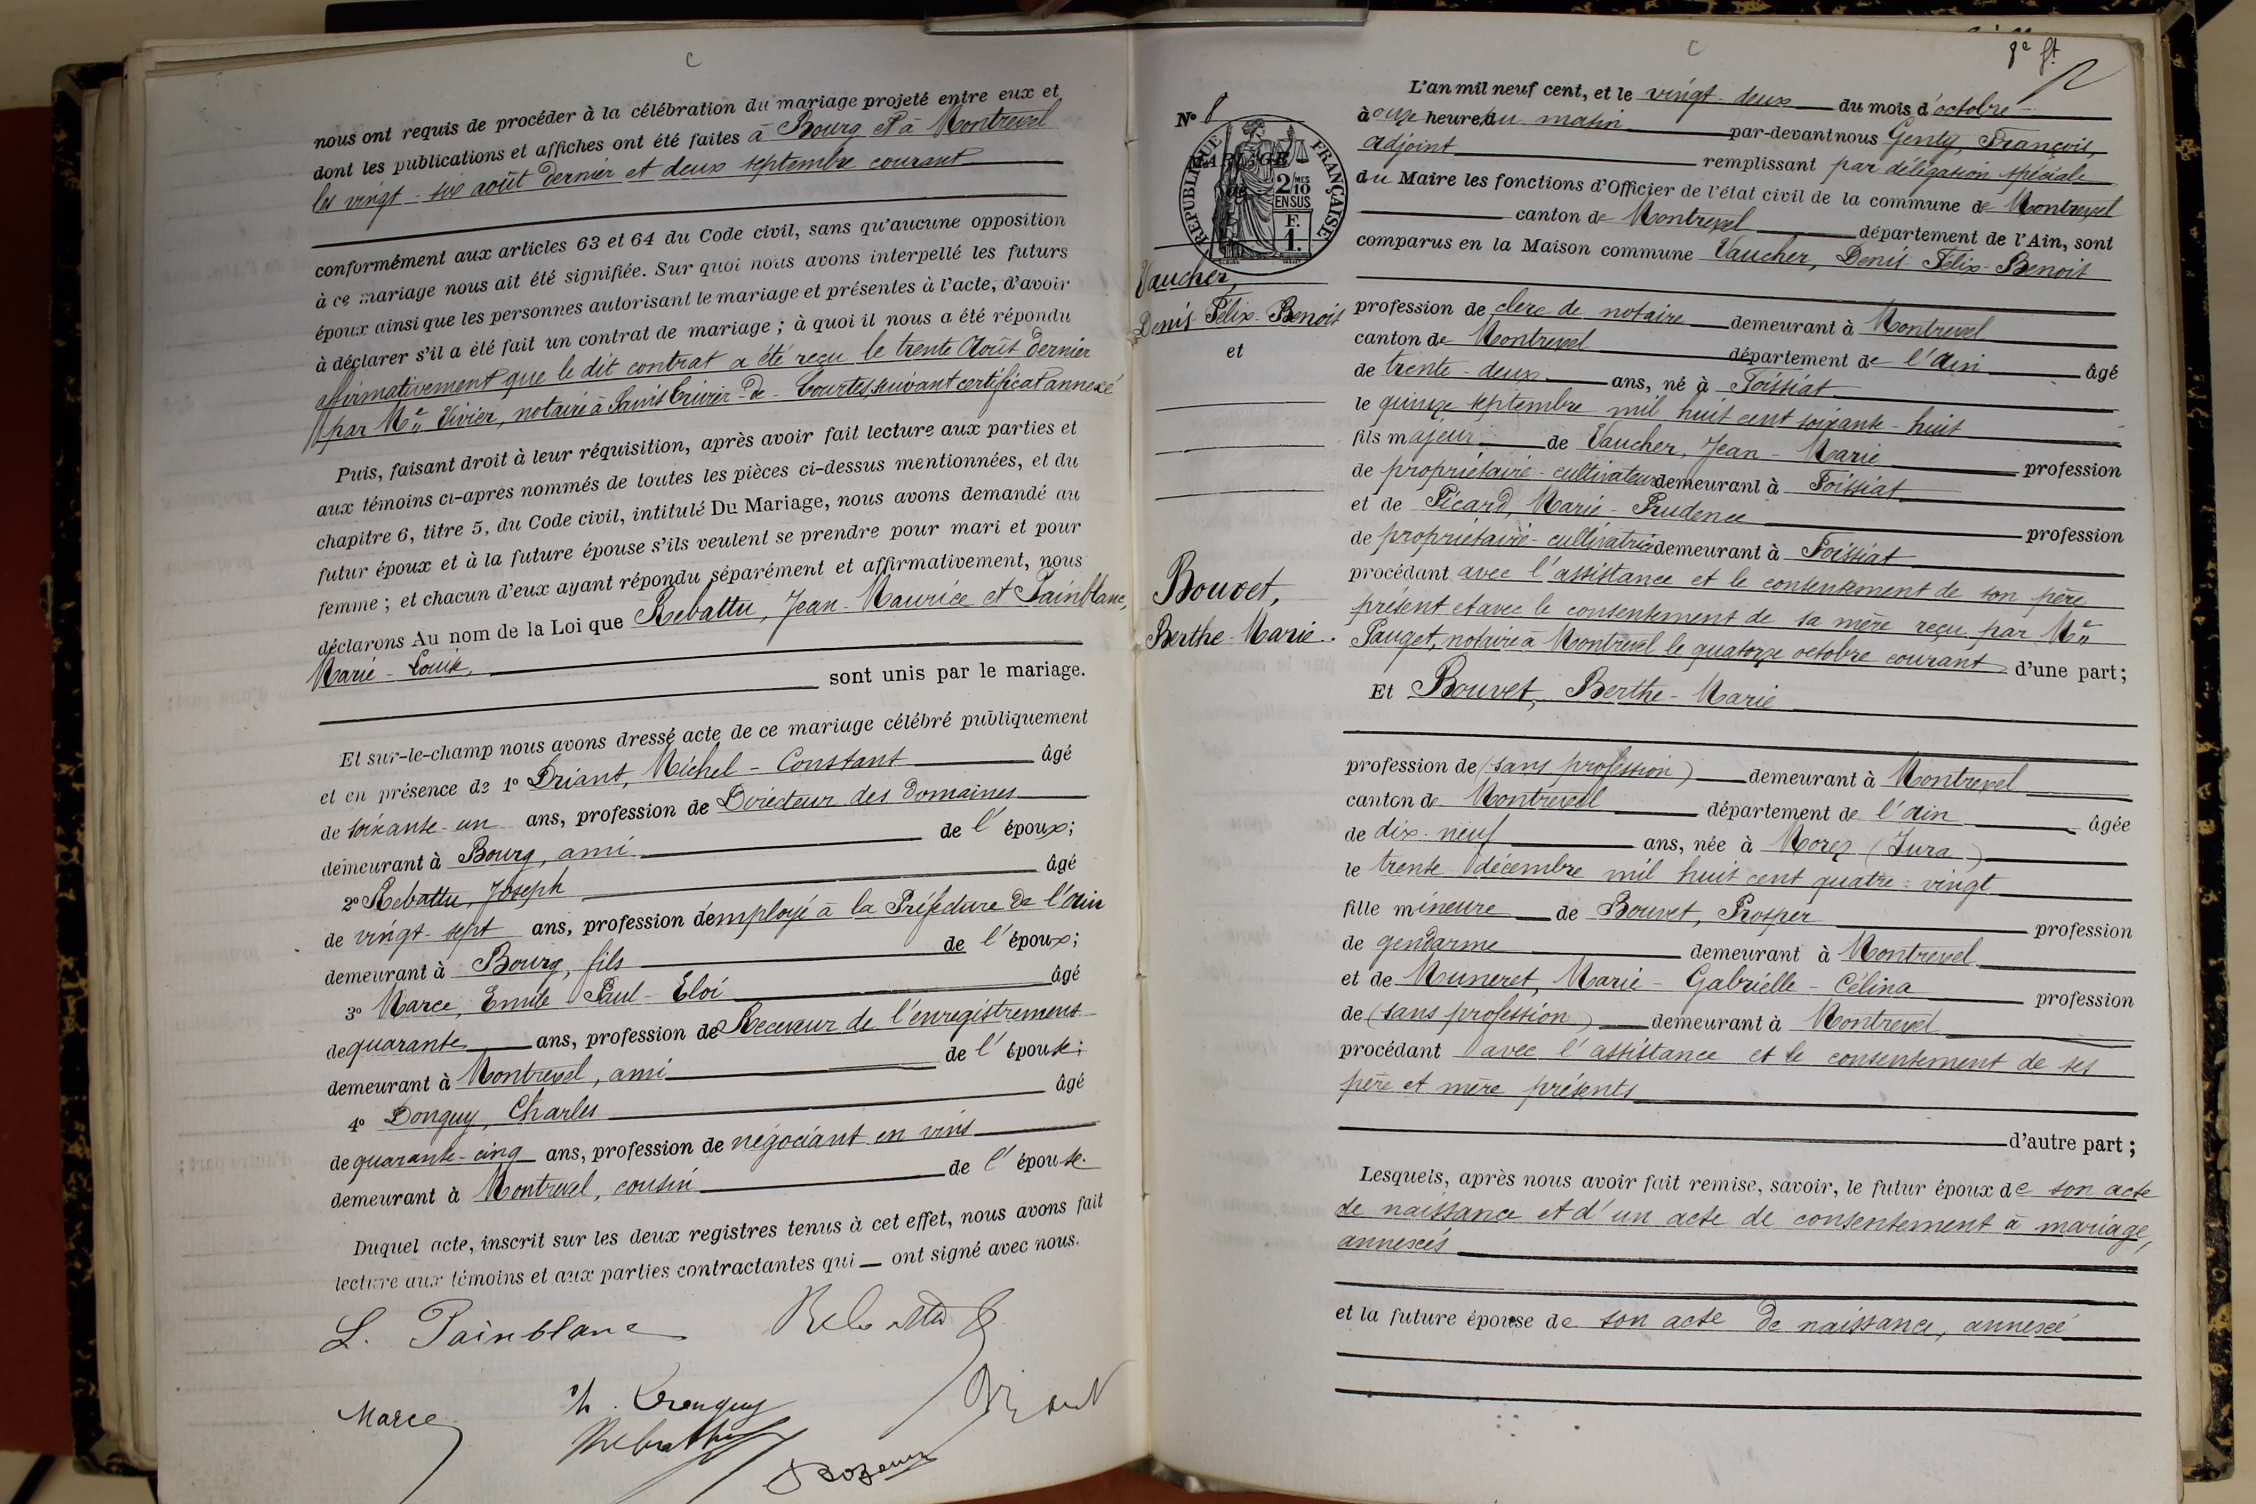 c
nous ont requis de procéder à la célébration du mariage projeté entre eux et
dont les publications et affiches ont été faites à Bourg et à Montrevel
les vingt-six août dernier et deux septembre courant
conformément aux articles 63 et 64 du Code civil, sans qu'aucune opposition
à ce mariage nous ait été signifiée. Sur quoi nous avons interpellé les futurs
époux ainsi que les personnes autorisant le mariage et présentes à l'acte, d'avoir
à déclarer s'il a été fait un contrat de mariage ; à quoi il nous a été répondu
affirmativement que le dit contrat a été reçu le trente Août dernier
par Me Vivier, notaire à Saint Trivier-de-Courtes, suivant certificat annexé
Puis, faisant droit à leur réquisition, après avoir fait lecture aux parties et
aux témoins ci-après nommés de toutes les pièces ci-dessus mentionnées, et du
chapitre 6, titre 5, du Code civil, intitulé Du Mariage, nous avons demandé au
futur époux et à la future épouse s'ils veulent se prendre pour mari et pour
femme ; et chacun d'eux ayant répondu séparément et affirmativement, nous
déclarons Au nom de la Loi que Rebattu, Jean-Maurice et Painblanc,
Marie-Louise,
sont unis par le mariage.
Et sur-le-champ nous avons dressé acte de ce mariage célébré publiquement
et en présence de 1º Driant, Michel-Constant âgé
de soixante-un ans, profession de Directeur des Domaines
demeurant à Bourg, ami de l'époux;
2º Rebattu, Joseph âgé
de vingt-sept ans, profession d'employé à la Préfecture de l'Ain
demeurant à Bourg, fils de l'époux;
3º Marce, Emile Paul-Eloi âgé
de quarante ans, profession de Receveur de l'enregistrement
demeurant à Montrevel, ami de l'épouse;
4º Donguy, Charles âgé
de quarante-cinq ans, profession de négociant en vins
demeurant à Montrevel, cousin de l'épouse.
Duquel acte, inscrit sur les deux registres tenus à cet effet, nous avons fait
lecture aux témoins et aux parties contractantes qui ont signé avec nous.
L. Painblanc Rebattu
Marce Ch. Donguy Driant
Rebattu
c
L'an mil neuf cent, et le vingt-deux du mois d'octobre
à onze heures du matin par-devant nous Genty, François,
adjoint remplissant par délégation spéciale
du Maire les fonctions d'Officier de l'état civil de la commune de Montrevel
canton de Montrevel département de l'Ain, sont
comparus en la Maison commune Vaucher, Denis-Félix-Benoit
profession de clerc de notaire demeurant à Montrevel
canton de Montrevel département de l'Ain âgé
de trente-deux ans, né à Foissiat
le quinze septembre mil huit cent soixante-huit
fils majeur de Vaucher, Jean-Marie profession
de propriétaire-cultivateur demeurant à Foissiat
et de Picard, Marie-Prudence profession
de propriétaire-cultivatrice demeurant à Foissiat
procédant avec l'assistance et le consentement de son père
présent et avec le consentement de sa mère reçu par Me
Pauget, notaire à Montrevel le quatorze octobre courant d'une part;
Et Bouvet, Berthe-Marie
profession de (sans profession) demeurant à Montrevel
canton de Montrevel département de l'Ain âgée
de dix-neuf ans, née à Morez (Jura)
le trente décembre mil huit cent quatre-vingt
fille mineure de Bouvet, Prosper profession
de gendarme demeurant à Montrevel
et de Muneret, Marie-Gabrielle-Célina profession
de (sans profession) demeurant à Montrevel
procédant avec l'assistance et le consentement de ses
père et mère présents
d'autre part;
Lesquels, après nous avoir fait remise, savoir, le futur époux de son acte
de naissance et d'un acte de consentement à mariage,
annexés
et la future épouse de son acte de naissance, annexé
Nº 8
MARIAGE
de
RÉPUBLIQUE FRANÇAISE
2 MES
10
EN SUS
F.
1.
Vaucher,
Denis Félix-Benoit
et
Bouvet,
Berthe-Marie.